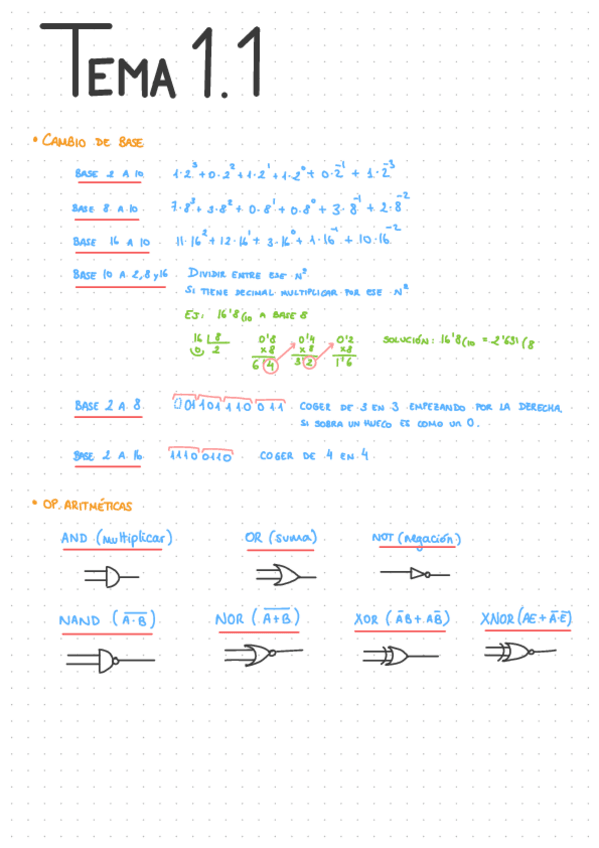 TEMA 1.1
• CAMBIO DE BASE
BASE 2 A 10 1·2³ + 0·2² + 1·2¹ + 1·2⁰ + 0·2⁻¹ + 1·2⁻³
BASE 8 A 10 7·8³ + 3·8² + 0·8¹ + 0·8⁰ + 3·8⁻¹ + 2·8⁻²
BASE 16 A 10 11·16² + 12·16¹ + 3·16⁰ + 1·16⁻¹ + 10·16⁻²
BASE 10 A 2,8 y 16 DIVIDIR ENTRE ESE Nº
SI TIENE DECIMAL MULTIPLICAR POR ESE Nº
EJ: 16'8(10 A BASE 8
16 8 0'8 0'4 0'2 SOLUCIÓN: 16'8(10 = 2'631(8
0 2 x8 x8 x8
6'4 3'2 1'6
BASE 2 A 8 001101110011 COGER DE 3 EN 3 EMPEZANDO POR LA DERECHA,
SI SOBRA UN HUECO ES COMO UN 0.
BASE 2 A 16 11100110 COGER DE 4 EN 4
• OP. ARITMÉTICAS
AND (multiplicar) OR (suma) NOT (negación)
NAND (A̅·̅B̅) NOR (A̅+̅B̅) XOR (A̅B + AB̅) XNOR (AE + A̅·E̅)